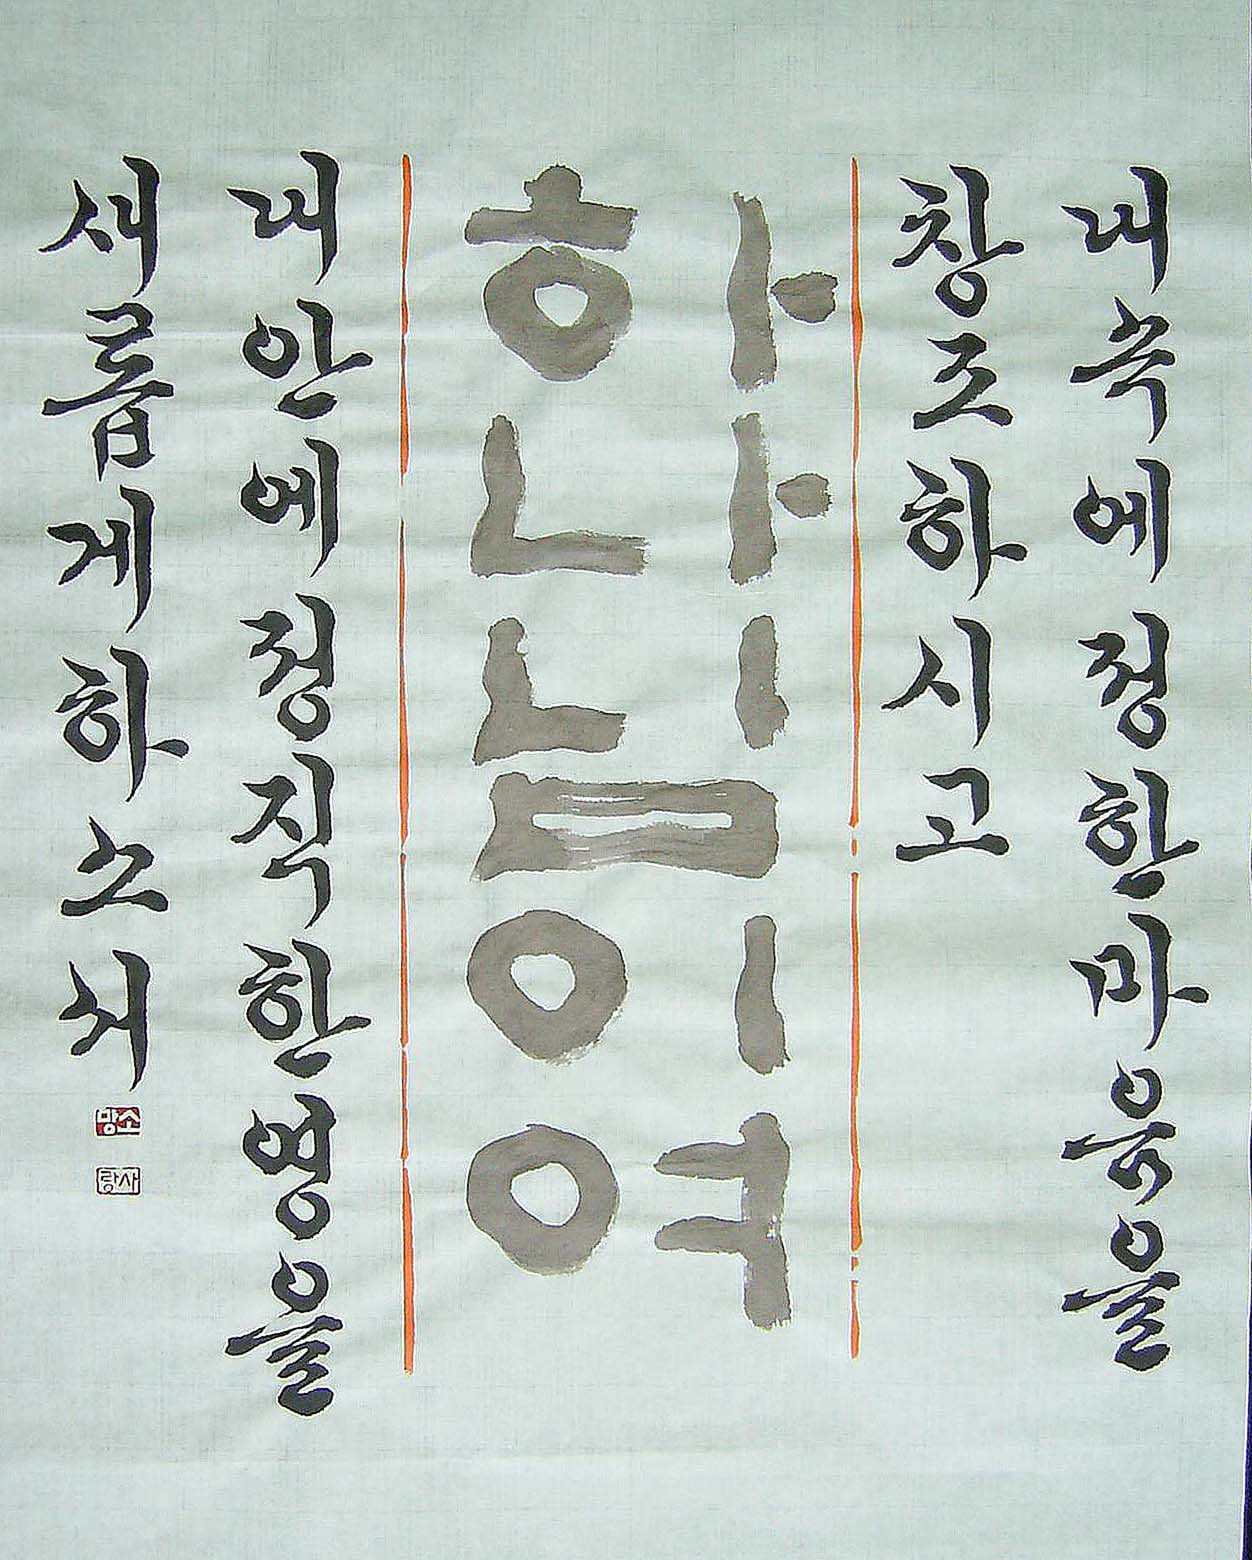 내속에정한마음을
창조하시고
하나님이여
내안에정직한영을
새롭게하소서
소망
사랑